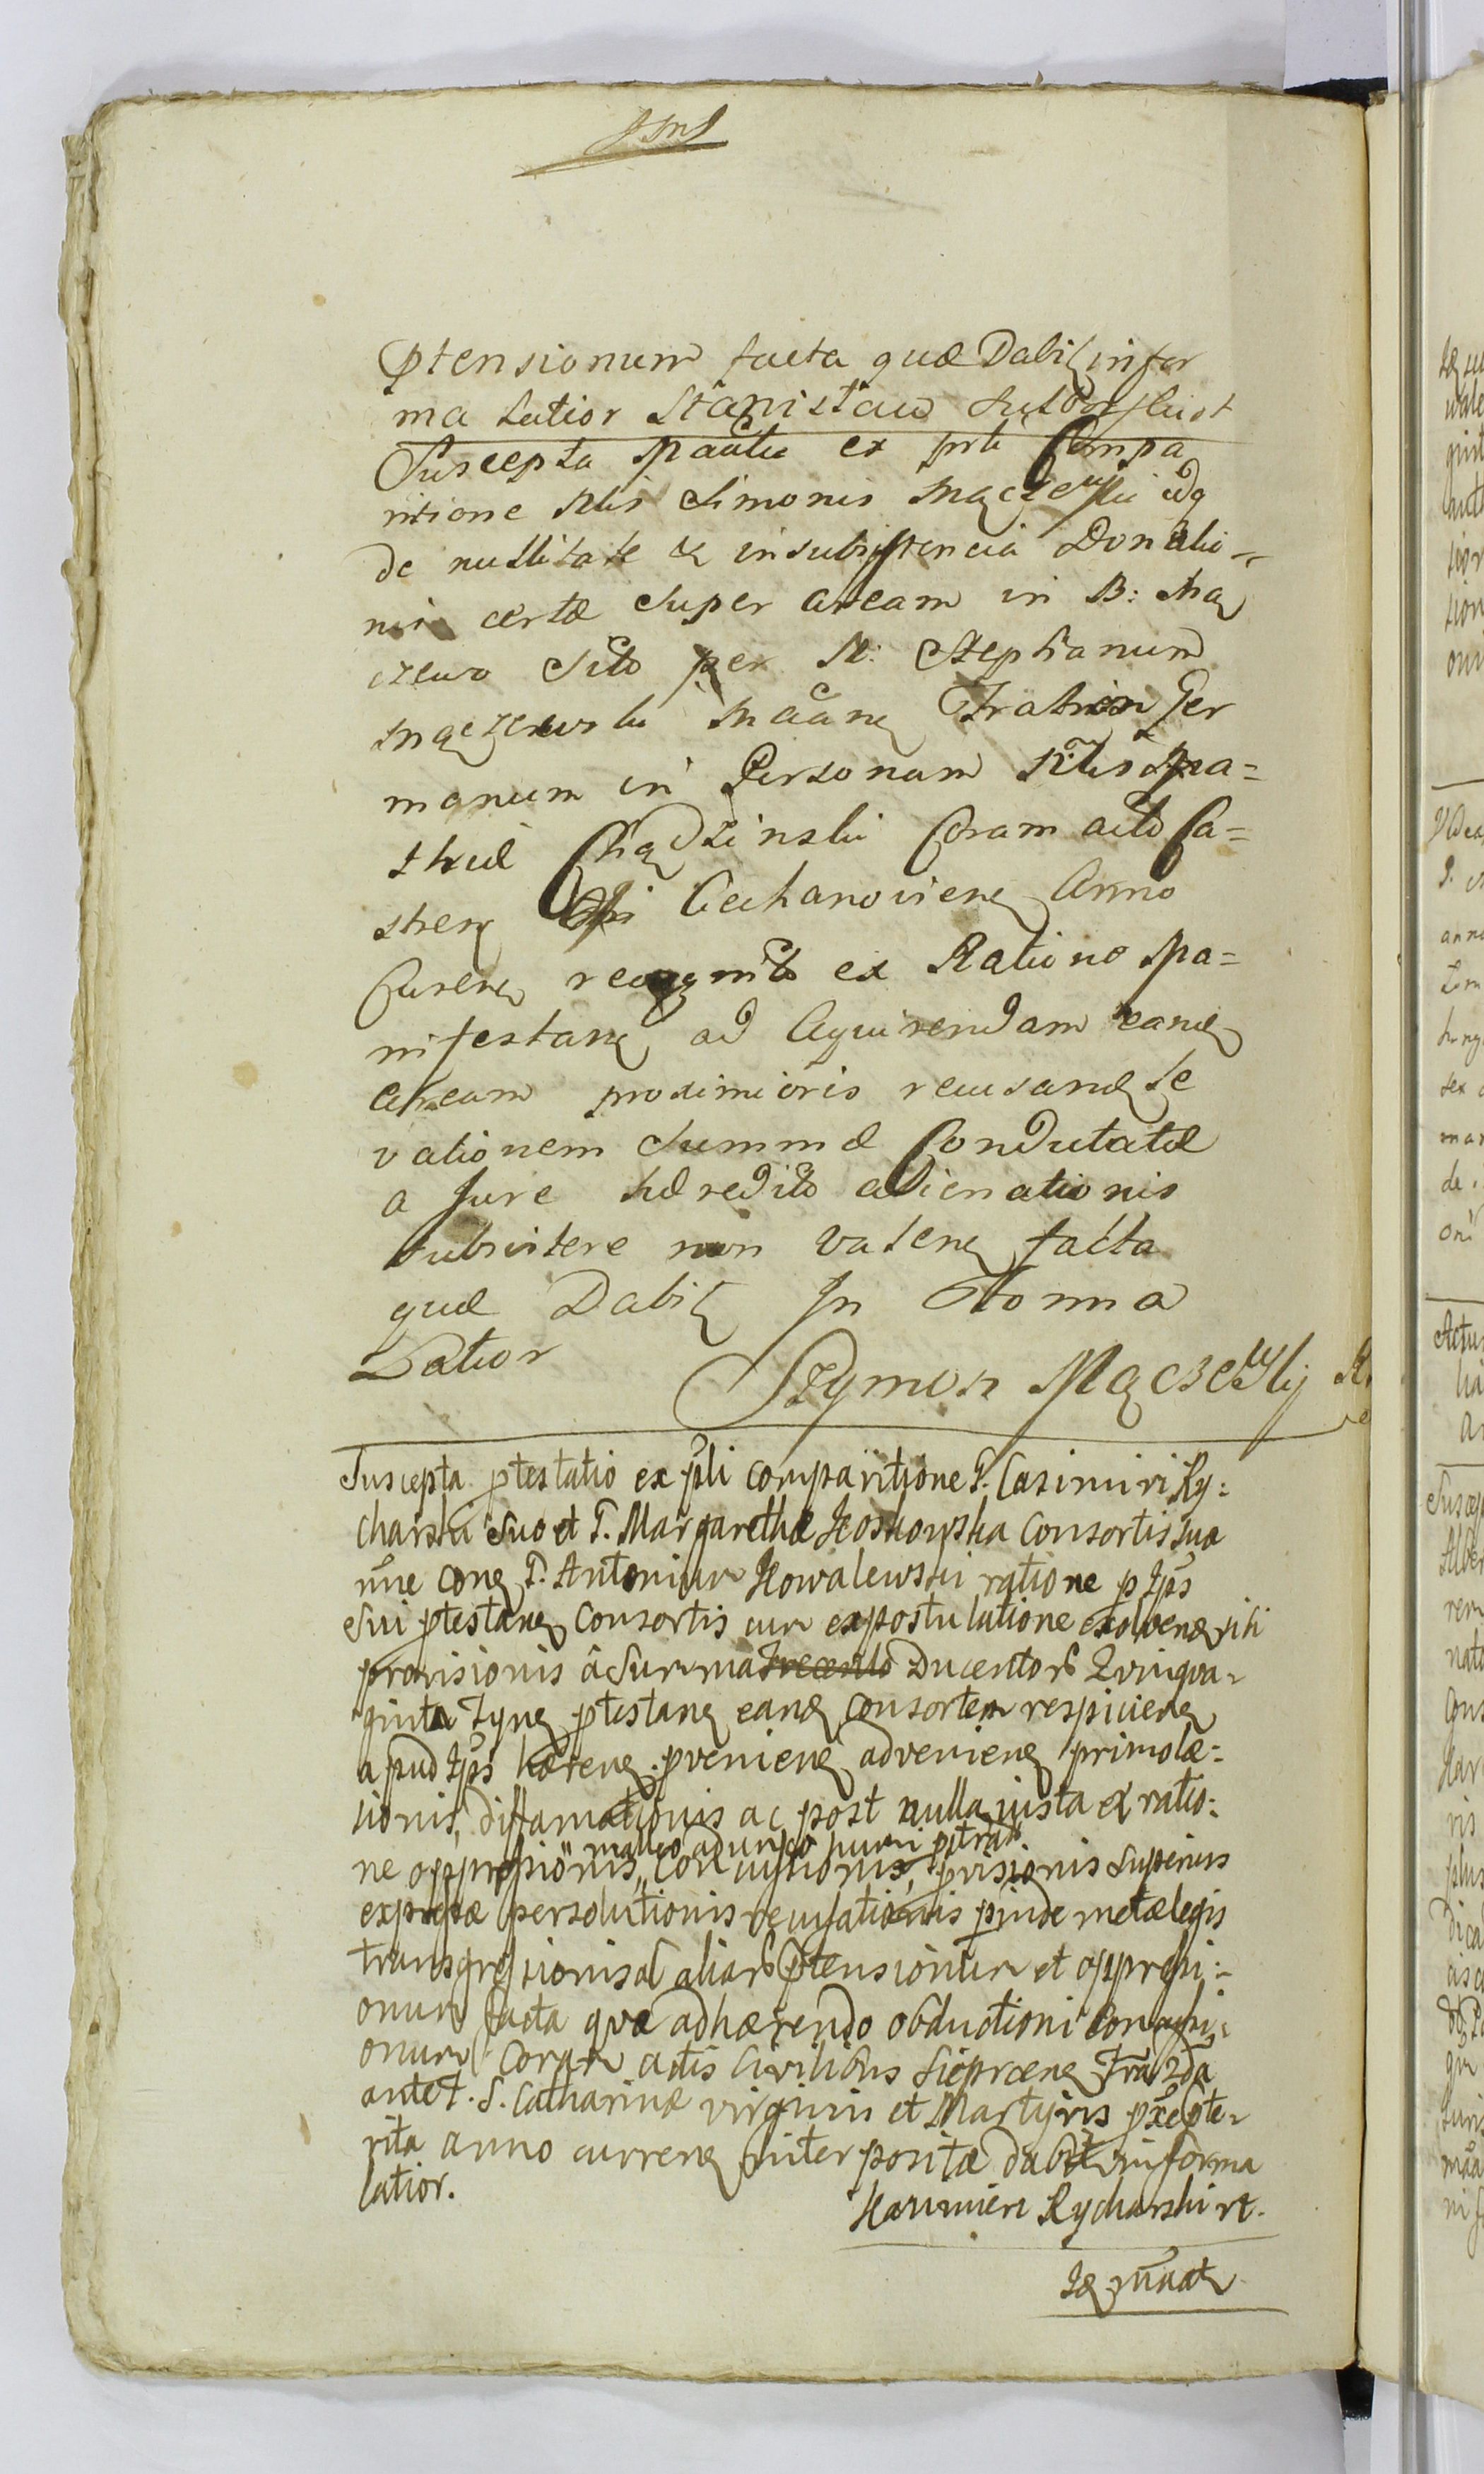 ptensionum facta quæ Dabit infor
ma latior Stanisław
Suscepta Mantio ex prti Compa
ritione Nlis Simonis Mączewski idq
de nullitate & insubsistencia Donatio=
nis certæ super aream in B: Mą
czewo sito per N. Stephanum
Mączewski Fratrem Ger
manum in Personam Nlis Ma=
thiæ Chądzinski Coram actis Ca=
stren Ciechanovien Anno
Curren recognito ex Ratione Ma=
nifestan ad Aquirendam eand
aream proximioris recusand
vationem summæ Condutatæ
a Jure hæredito alienationis
subsistere non valen facta
quæ Dabit In Forma
Latior
Szymon Mączewskij
Suscepta ptestatio ex pti comparitione G. Casimiri Ry=
charski suo et G. Margarethæ Koskowska Consortis suæ
nne con G. Antonium Kowalewski ratione p Ips
sui ptestan Consortis cum expostulatione exolvend sibi
provisionis à summa Trecento Ducentor Qvinqva=
ginta Tyn ptestan eand Consortem respicien
apud Ips hæren pvenien advenien primo læ=
sionis, diffamationis ac post nulla iusta ex ratio=
ne oppressionis, concussionis, pvisionis superius
expressæ persolutionis recusationis pinde metæ legis
transgressionis al aliar ptensionum et oppressi=
onum facta quæ adhærendo obductioni Concussi=
onum coram actis Civilibus Sieprcen Fra 2da
ante F. S. Catharinæ virginis et Martyris pxe pte=
rita anno curren interpositæ dabit in forma
latior.
Kazimierz Rycharski